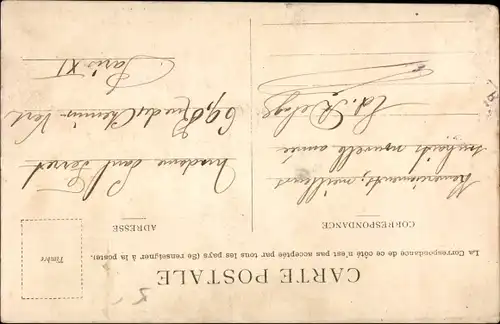 CARTE POSTALE
La Correspondance de ce côté n'est pas acceptée par tous les pays (Se renseigner à la poste).
CORRESPONDANCE
Remerciements, meilleurs
souhaits nouvelle année
Ed.
ADRESSE
Timbre
Madame Paul
69, Rue du Chemin-Vert
Paris XI